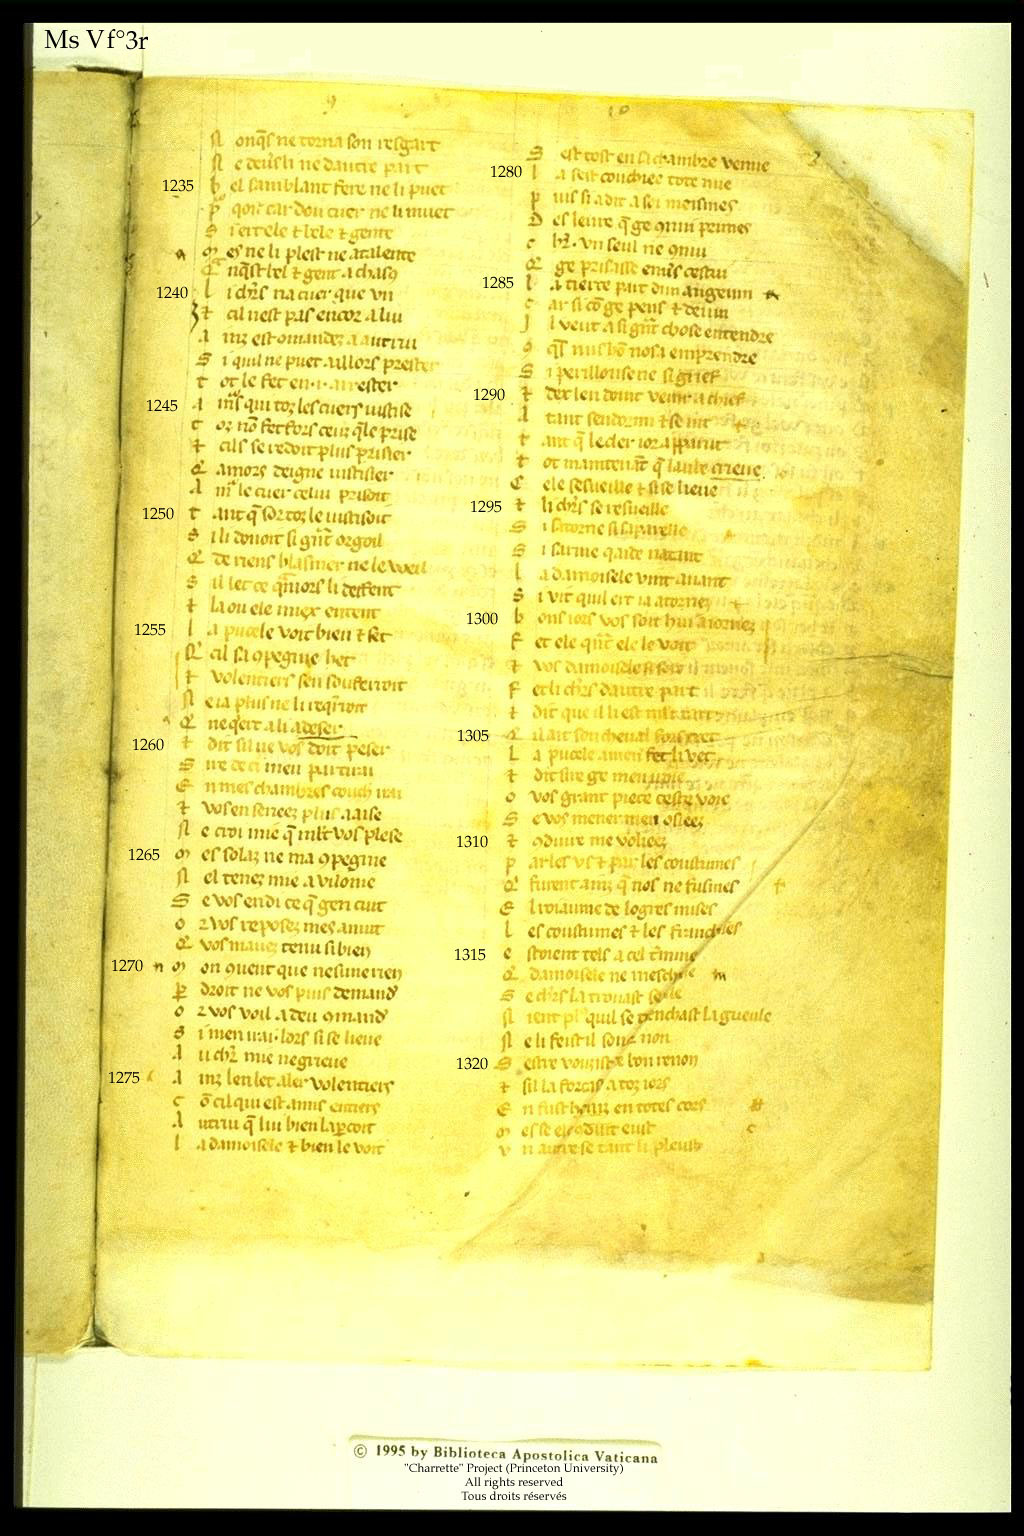 Ms V f°3r
9
10
N onq̄s ne torna son resgart
N e deu͛s li ne dautre part
1235
b el samblant fere ne li puet
p qoi car dou cuer ne li muet
S i ert ele ⁊ bele ⁊ gente
m es ne li plest ne atalente
Q nq̄st bel ⁊ gent a chasꝯ
1240
l i ch͛rs na cuer que vn
⁊ cil nest pas encor a lui
A inz est ꝯmandez a autrui
S i quil ne puet aillors prester
t ot le fet en .i. arester
1245
A m͛s qui toz les cuers iustise
t oz nō fet fors ceuz q̄le prise
⁊ cils se redoit plus prisier
Q amors deigne iustisier
A m͛ le cuer celui prisoit
1250
t ant q̄ sor toz le iustisoit
S i li donoit si g̃nt orgoil
Q de riens blasmer ne le weil
S il let ce q̄mors li deffent
⁊ la ou ele miex entent
1255
l a pucele voit bien ⁊ set
Q cil sa ꝯpegnie het
⁊ volentiers sen soufferroit
N e ia plus ne li req̄rroit
Q ne qert a li adeser
1260
⁊ dit sil ne vos doit peser
S ire de ci men partirai
E n mes chambres couch irai
⁊ vos en sereez plus a aise
N e croi mie q̄ mlt vos plese
1265
m es solaz ne ma ꝯpegnie
N el tenez mie a vilonie
S e vos en di ce q̄ gen cuit
o r vos reposez mes anuit
Q vos mauez tenu si bien
1270
m on ꝯuent que nesune rien
ꝑ droit ne vos puis demand͛
o r vos voil a deu ꝯmand͛
S i men irai. lors si se lieue
A u ch͛r mie ne grieue
1275
A inz len let aler volentiers
c ō cil qui est amis entiers
A utrui q̄ lui bien laꝑcoit
l a damoisele ⁊ bien le voit
S est tost en sa chambre venue
1280
l a sest couchiee tote nue
p uis si a dit a soi meismes
D es leure q̄ ge ꝯnui primes
c h͛r. vn seul ne ꝯnui
Q ge prisasse enu͛s cestui
1285
l a tierce part dun angeuin
c ar si cō ge pens ⁊ deuin
J l veut a si g̃nt chose entendre
ꝯ q̄s nus hō nosa emprendre
S i perillouse ne si grief
1290
⁊ dex len doint venir a chief
A tant sendormi ⁊ se iut
t ant q̄ le cler ior apparut
t ot maintenāt q̄ laube crieue
E ele sesueille ⁊ si se lieue
1295
⁊ li ch͛rs se resueille
S i satorne si saparelle
S i sarme qaide natant
l a damoisele vint auant
S i vit quil ert ia atornez
1300
b ons iors vos soit hui aiornez
F et ele q̄nt ele le voit
⁊ vos damoisele si soit
F et li ch͛rs dautre part
⁊ dit que il li est mlt tart
1305
Q il ait son cheual fors tret
L a pucele amen fet li vet
⁊ dit sire ge men iroie
o vos grant piece ceste voie
S e vos mener men osiez
1310
⁊ ꝯduire me voliez
p ar les vs ⁊ par les coustumes
Q furent ainz q̄ nos ne fusmes
E l roiaume de logres mises
L es coustumes ⁊ les franchises
1315
e stoient tels a cel t̄mine
Q damoisele ne meschine
S e ch͛rs la trouast sole
N ient pl' quil se trenchast la gueule
N e li feist il soue non
1320
S estre vousist de bon renon
⁊ sil la forcast a toz iors
E n fust honiz en totes cors
m es se ele ꝯduit eust
v n autre se tant li pleust
© 1995 by Biblioteca Apostolica Vaticana
"Charrette" Project (Princeton University)
All rights reserved
Tous droits réservés